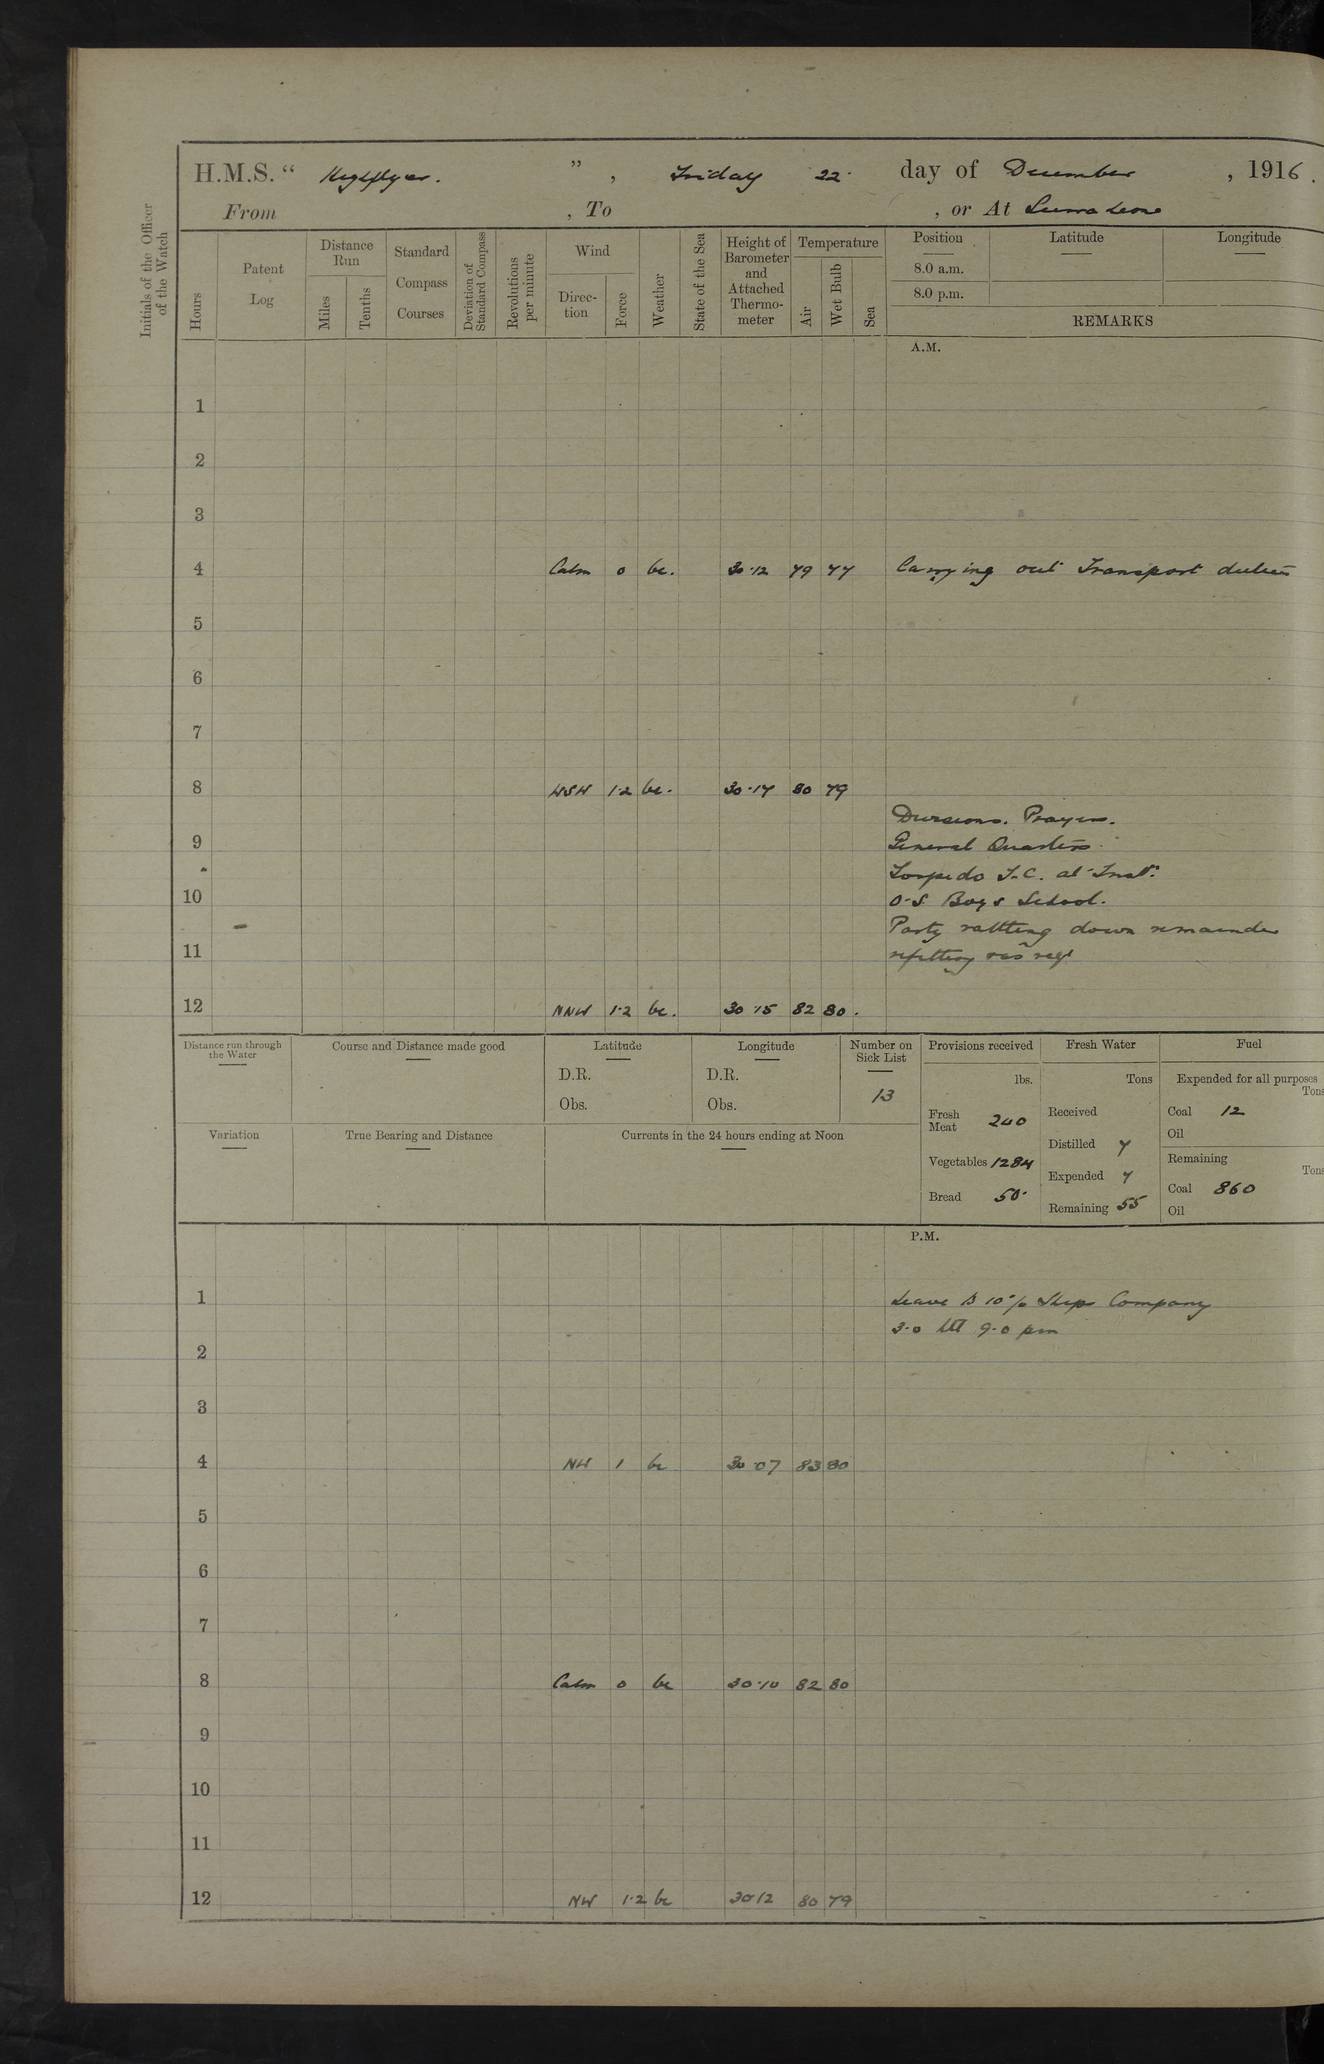 H.M.S. " Highflyer. " , Friday 22 day of December , 1916.
From , To , or At Sierra Leone
Initials of the Officer of the Watch
Hours
Patent Log
Distance Run
Miles
Tenths
Standard Compass Courses
Deviation of Standard Compass
Revolutions per minute
Wind
Direc-tion
Force
Weather
State of the Sea
Height of Barometer and Attached Thermo-meter
Temperature
Air
Wet Bulb
Sea
Position
8.0 a.m.
8.0 p.m.
Latitude
Longitude
REMARKS
A.M.
1
2
3
4 Calm 0 bc. 30.12 79 77 Carrying out Transport duties
5
6
7
8 WSW 1.2 bc. 30.17 80 79
Divisions. Prayers.
9 General Quarters
Torpedo T.C. at Inst.
10 O.S. Boys School.
Party rattling down remainder
11 refitting
12 NNW 1.2 bc. 30.15 82 80.
Distance run through the Water
Course and Distance made good
Latitude
D.R.
Obs.
Longitude
D.R.
Obs.
Number on Sick List
13
Provisions received
lbs.
Fresh Meat 200
Vegetables 1284
Bread 50
Fresh Water
Tons
Received
Distilled 7
Expended 7
Remaining 55
Fuel
Expended for all purposes
Tons
Coal 12
Oil
Remaining
Tons
Coal 860
Oil
Variation
True Bearing and Distance
Currents in the 24 hours ending at Noon
P.M.
1 Leave to 10% Ships Company
3.0 till 9.0 pm
2
3
4 NW 1 bc 30.07 83 80
5
6
7
8 Calm 0 bc 30.10 82 80
9
10
11
12 NW 1.2 bc 30.12 80 79